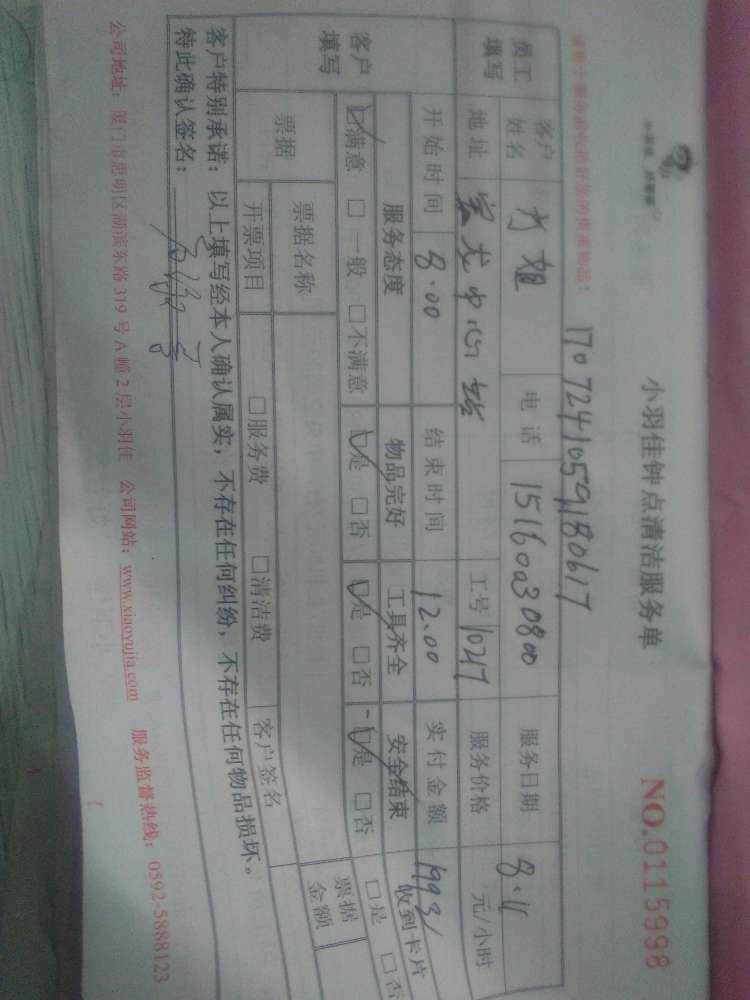 小羽佳钟点清洁服务单
NO.0115998
17072410591180617
员工填写
客户姓名 方姐 电话 15160030800 服务日期 8.11
地址 宏龙中心站 工号 1047 服务价格 元/小时
开始时间 8.00 结束时间 12.00 实付金额 1993/
客户填写
服务态度 物品完好 工具齐全 安全结束 收到卡片
☑满意 □一般 □不满意 ☑是 □否 ☑是 □否 ☑是 □否 □是 □否
票据 票据名称 票据金额
开票项目 □服务费 □清洁费 客户签名
客户特别承诺：以上填写经本人确认属实，不存在任何纠纷，不存在任何物品损坏。
特此确认签名：
公司地址：厦门市思明区湖滨东路319号A幢2层小羽佳 公司网站：www.xiaoyujia.com 服务监督热线：0592-5888123